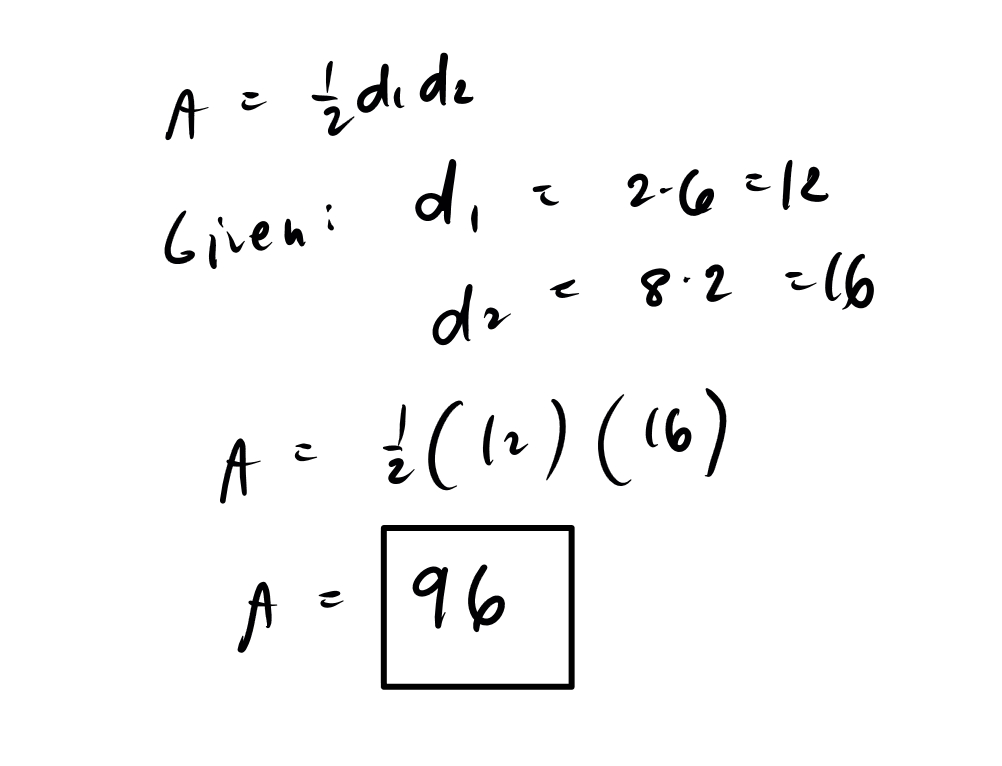 A = ½d₁d₂
Given: d₁ = 2·6 = 12
d₂ = 8·2 = 16
A = ½(12)(16)
A = 96